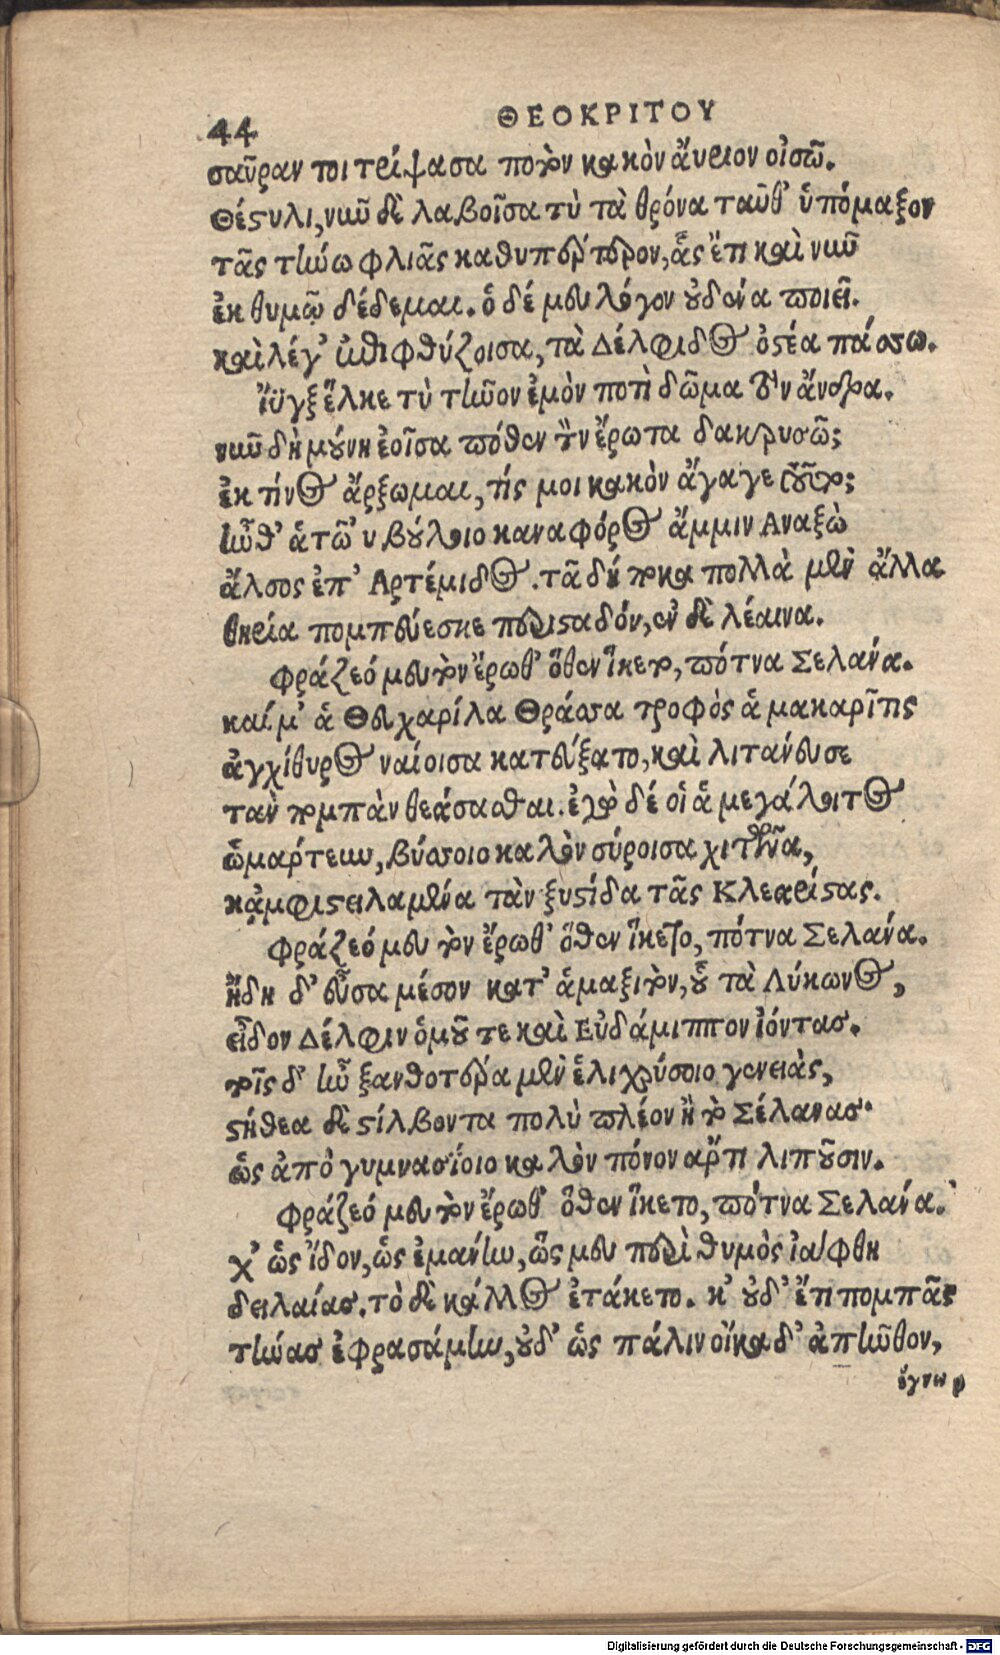 44 ΘΕΟΚΡΙΤΟΥ
σαῦραν τοι τρίψασα ποτὸν κακὸν ἄυριον οἰσῶ.
Θέστυλι, νιῦ δὲ λαβοῖσα τὺ τὰ θρόνα ταῦθ' ὑπόμαξον
τᾶς τήνω φλιᾶς καθυπέρτερον, ἇς ἔτι καὶ νῦν
ἐκ θυμῶ δέδεμαι. ὁ δέ μευ λόγον οὐδένα ποιεῖ.
καὶ λέγ' ἐπιφθύζοισα, τὰ Δέλφιδος ὀστέα πάσσω.
Ἴϋγξ ἕλκε τὺ τῆνον ἐμὸν ποτὶ δῶμα τὸν ἄνδρα.
νῦν δὴ μούνη ἐοῖσα πόθεν τὸν ἔρωτα δακρυσῶ;
ἐκ τίνος ἄρξωμαι, τίς μοι κακὸν ἄγαγε τοῦτο;
ἦνθ' ἁ τῶ 'υβούλοιο καναφόρος ἄμμιν Αναξὼ
ἄλσος ἐπ' Αρτέμιδος. τᾶ δή τοκα πολλὰ μὲν ἄλλα
θηρία πομπεύεσκε περισταδόν, ἐν δὲ λέαινα.
Φράζεό μευ τὸν ἔρωθ' ὅθεν ἵκετο, πότνα Σελάνα.
καί μ' ἁ Θευχαρίλα Θράσσα τροφὸς ἁ μακαρῖτις
ἀγχίθυρος ναίοισα κατεύξατο, καὶ λιτάνευσε
τὰν πομπὰν θεάσασθαι. ἐγὼ δέ οἱ ἁ μεγάλοιτος
ὡμάρτευν, βύσσοιο καλὸν σύροισα χιτῶνα,
κἀμφιστειλαμένα τὰν ξυστίδα τᾶς Κλεαρίστας.
Φράζεό μευ τὸν ἔρωθ' ὅθεν ἵκετο, πότνα Σελάνα.
ἤδη δ' εὖσα μέσον κατ' ἁμαξιτὸν, ᾇ τὰ Λύκωνος,
εἶδον Δέλφιν ὁμοῦ τε καὶ Εὐδάμιππον ἰόντας.
τοῖς δ' ἦν ξανθοτέρα μὲν ἑλιχρύσοιο γενειὰς,
στήθεα δὲ στίλβοντα πολὺ πλέον ἢ τὸ Σέλανας·
ὡς ἀπὸ γυμνασίοιο καλὸν πόνον ἄρτι λιποῦσιν.
Φράζεό μευ τὸν ἔρωθ' ὅθεν ἵκετο, πότνα Σελάνα.
χ' ὡς ἴδον, ὡς ἐμάνην, ὥς μευ περὶ θυμὸς ἰάφθη
δειλαίας. τὸ δὲ κάλλος ἐτάκετο. κ' οὐδ' ἔτι πομπᾶς
τήνας ἐφρασάμην, οὐδ' ὡς πάλιν οἴκαδ' ἀπῆνθον,
ἔγνων
Digitalisierung gefördert durch die Deutsche Forschungsgemeinschaft - DFG